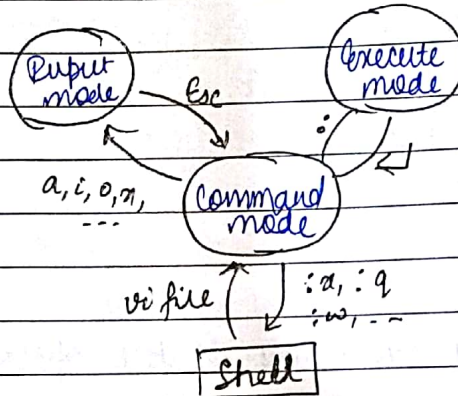 Input
mode
Execute
mode
Esc
:
a, i, o, r,
---
Command
mode
vi file
:x, :q
:w, ..
Shell